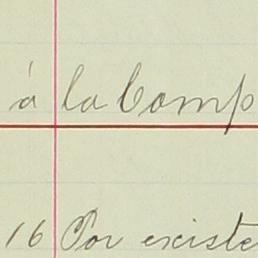 á la Comp
16 Por existe